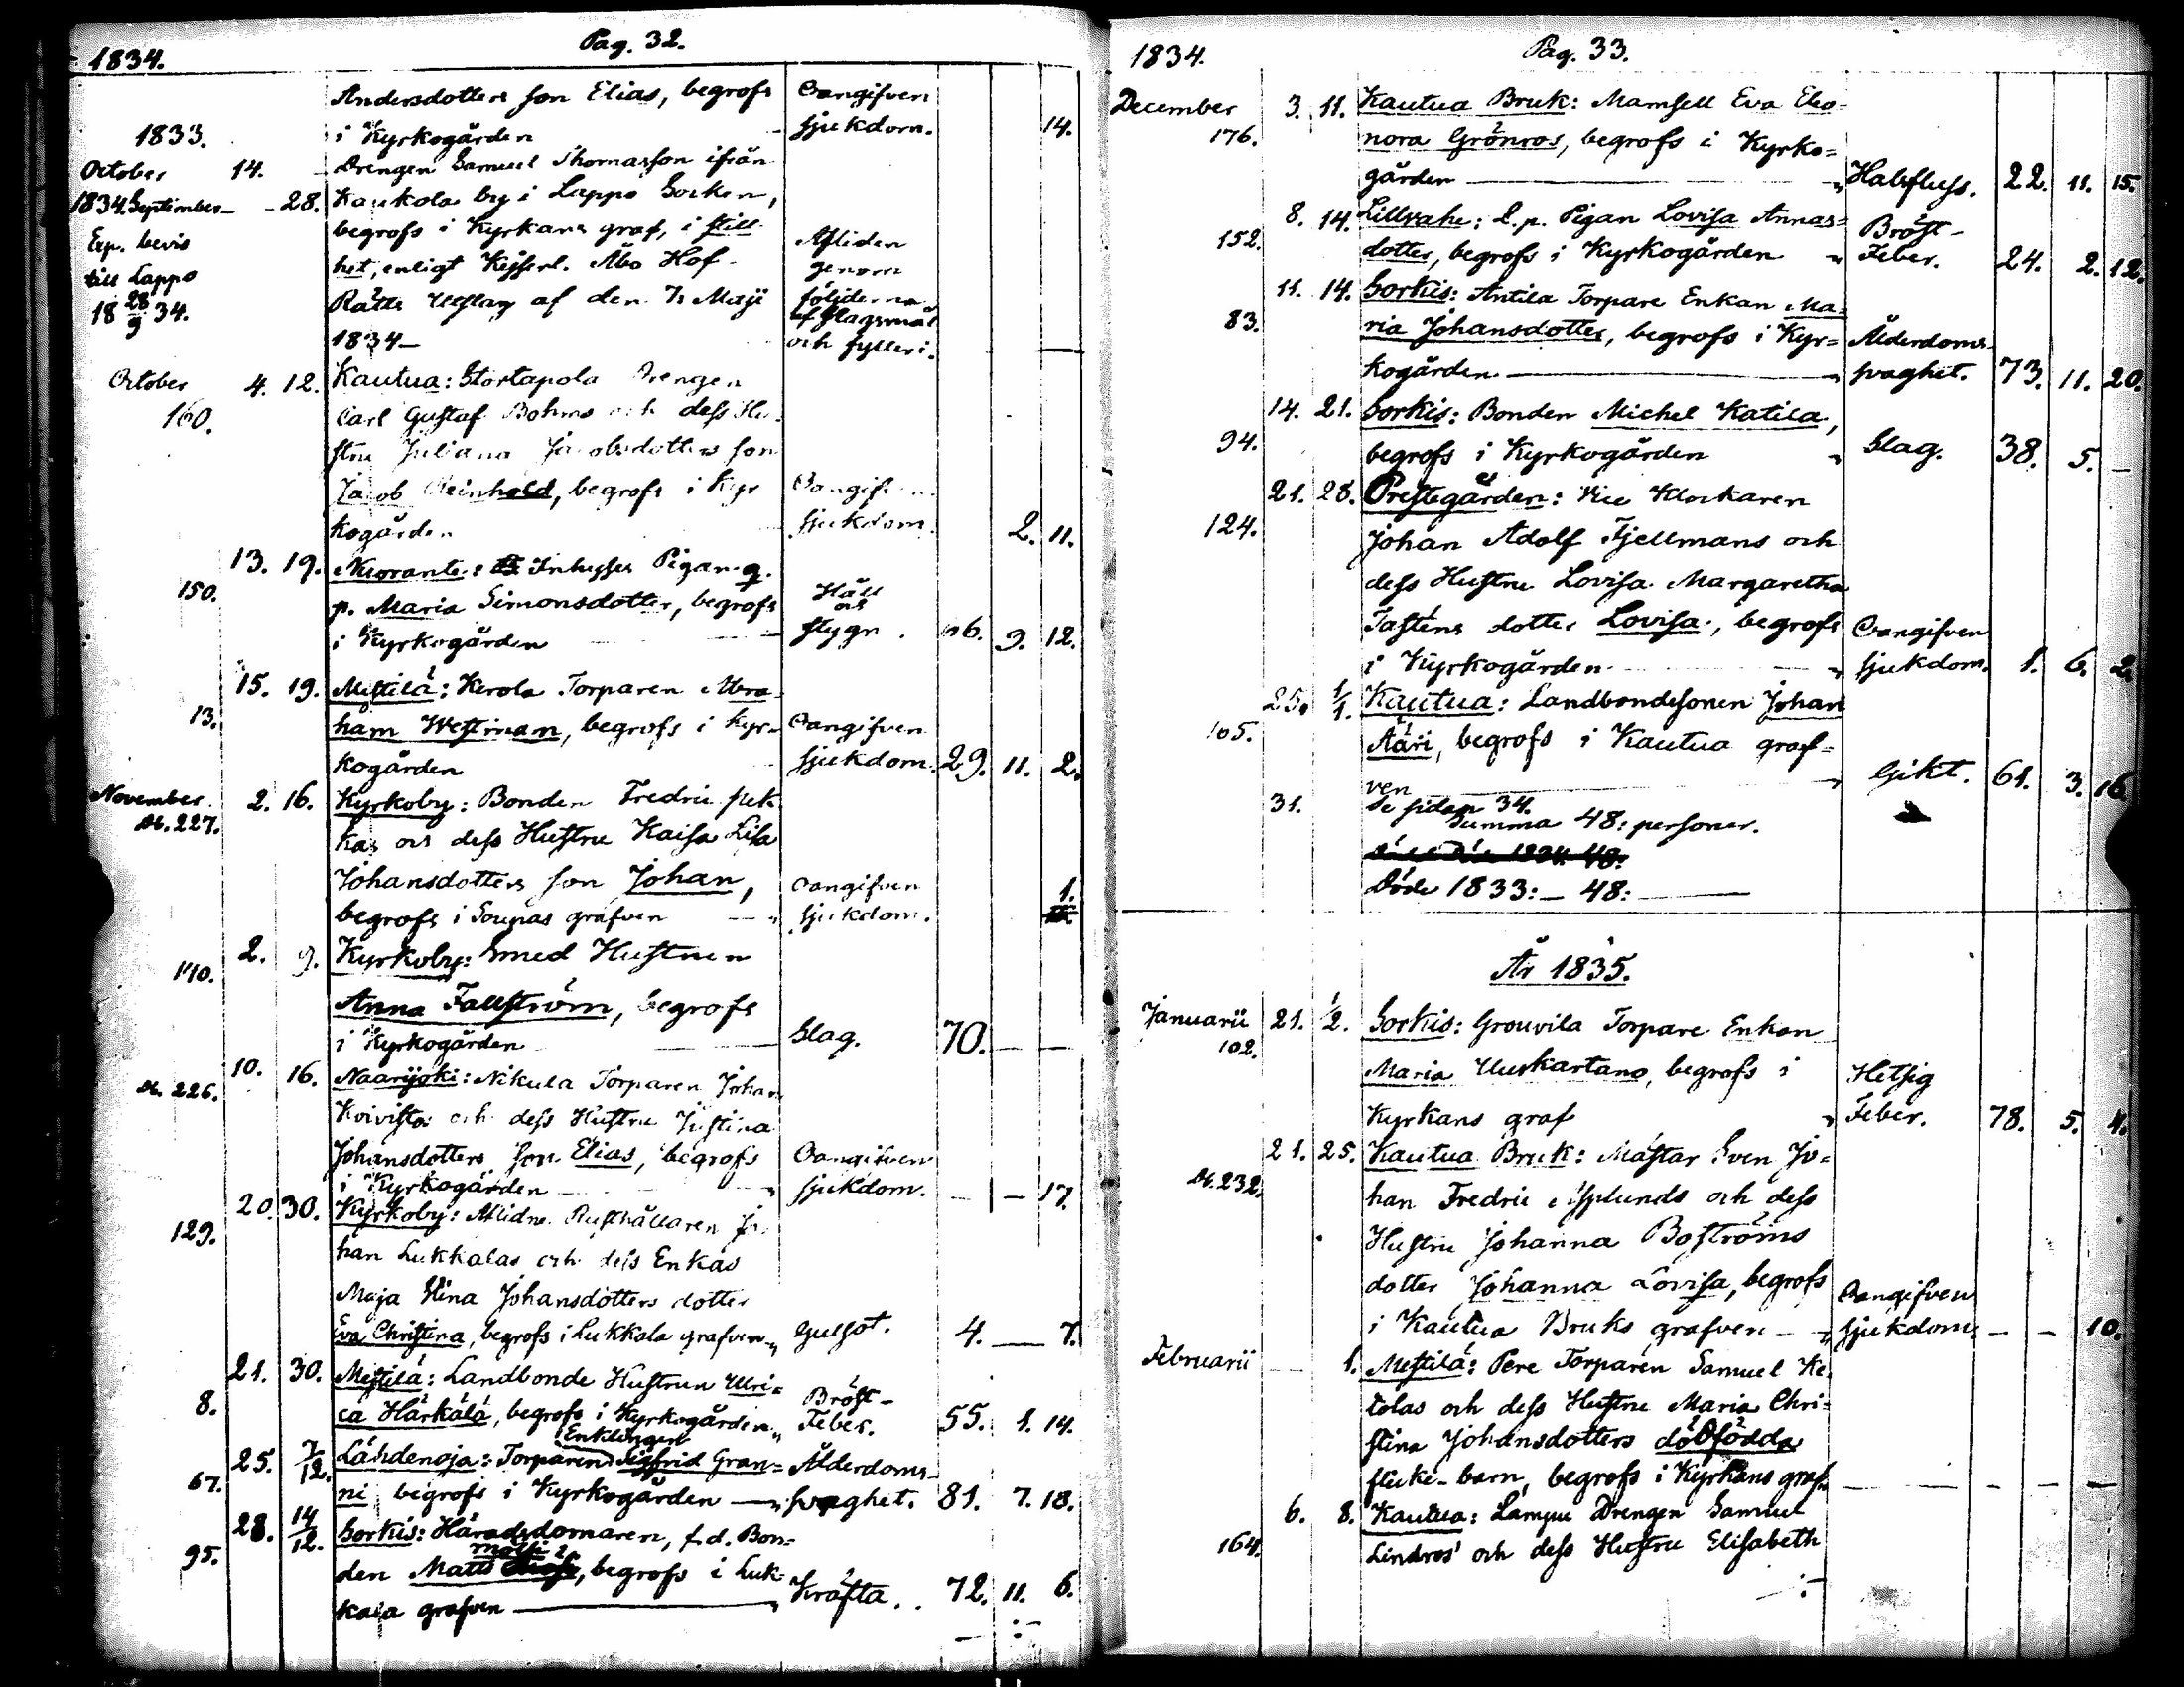 1834. Pag. 32.
Andersdotters son Elias, begrofs Oangifven
i Kyrkogården sjukdom. 14.
1833.
October 14. Drengen Samuel Thomasson ifrån
1834. September 28. Kaukola by i Lappo Socken,
begrofs i Kyrkans graf, i still-
Exp. bevis Afliden
till Lappo het, enligt Kejserl. Åbo Hof- genom
18 28/9 34. Rätts Utslag af den Maji följderna
af slagsmål
1834 — och fylleri. —
October 4. 12. Kautua: Stortapola Drengen
160. Carl Gustaf Bohms och dess Hu-
stru Juliana Jacobsdotters son
Jacob Reinhold, begrofs i Kyr Oangifven
kogården sjukdom. 2. 11.
13. 19. Nuoranta: Inhyses Pigan q.
150. p. Maria Simonsdotter, begrofs Håll och
i Kyrkogården — stygn. 66. 9. 12.
15. 19. Mestilä: Kerola Torparen Abra-
13. ham Westman, begrofs i Kyr- Oangifven
kogården sjukdom. 29. 11. 2.
November 2. 16. Kyrkoby: Bonden Fredric Pek
N. 227. kas och dess Hustru Kaisa Lisa
Johansdotters son Johan, Oangifven 1.
begrofs i Soupas grafven — sjukdom.
2. 9. Kyrkoby: Smed Hustrun
140. Anna Fallström, begrofs
i Kyrkogården — Slag. 70. — —
10. 16. Naarijoki: Nikula Torparen Johan
N. 226. Koivistos och dess Hustru Justina
Johansdotters son Elias, begrofs Oangifven
i Kyrkogården — sjukdom. — — 17.
20. 30. Kyrkoby: Aflidne Rusthållaren Jo-
129. han Lukkalas och dess Enkas
Maja Stina Johansdotters dotter
Eva Christina, begrofs i Lukkala grafven Gulsot. 4. — 7.
21. 30. Mestilä: Landbonde Hustrun Ulri- Bröst-
8. ca Härkälä, begrofs i Kyrkogården Feber. 55. 1. 14.
Enklingen
25. 7/12. Lähdenoja: Torparen Sigfrid Gran- Ålderdoms-
67. ni begrofs i Kyrkogården — svaghet. 81. 7. 18.
28. 14/12. Sorkis: Häradsdomaren, f.d. Bon-
95. den Matts, begrofs i Luk-
kala grafven — Kräfta. 72. 11. 6.
1834. Pag. 33.
December 3. 11. Kautua Bruk: Mamsell Eva Eleo-
176. nora Grönros, begrofs i Kyrko=
gården — Halsfluss. 22. 11. 15.
8. 14. Lillvahe: q. p. Pigan Lovisa Annas= Bröst-
152. dotter, begrofs i Kyrkogården Feber. 24. 2. 12.
11. 14. Sorkis: Antila Torpare Enkan Ma-
83. ria Johansdotter, begrofs i Kyr= Ålderdoms-
kogården. — svaghet. 73. 11. 20.
14. 21. Sorkis: Bonden Michel Katila,
94. begrofs i Kyrkogården Slag. 38. 5. —
21. 28. Prestegården: Vice Klockaren
124. Johan Adolf Fjellmans och
dess Hustru Lovisa Margaretha
Tasténs dotter Lovisa, begrofs Oangifven
i Kyrkogården — sjukdom. 1. 6. 2.
25. 1/1. Kautua: Landbondesonen Johan
105. Ääri, begrofs i Kautua graf-
ven — Gikt. 61. 3. 16.
31. Se sidan 34.
Summa 48: personer.
Döde 1833: — 48: —
År 1835.
Januarii 21. 1/2. Sorkis: Grouvila Torpare Enkan
102. Maria Uuskartano, begrofs i Hetsig
Kyrkans graf Feber. 78. 5. 4.
21. 25. Kautua Bruk: Mästar Sven Jo=
N. 232. han Fredric Asplunds och dess
Hustru Johanna Boströms
dotter Johanna Lovisa, begrofs Oangifven
i Kautua Bruks grafven — sjukdom — — 10.
Februarii — 1. Mestilä: Pere Torparen Samuel Ke-
tolas och dess Hustru Maria Chri-
stina Johansdotters dödfödda
flicke-barn, begrofs i Kyrkans graf — — —
6. 8. Kautua: Lampu Drengen Samuel
164. Lindros' och dess Hustru Elisabeth